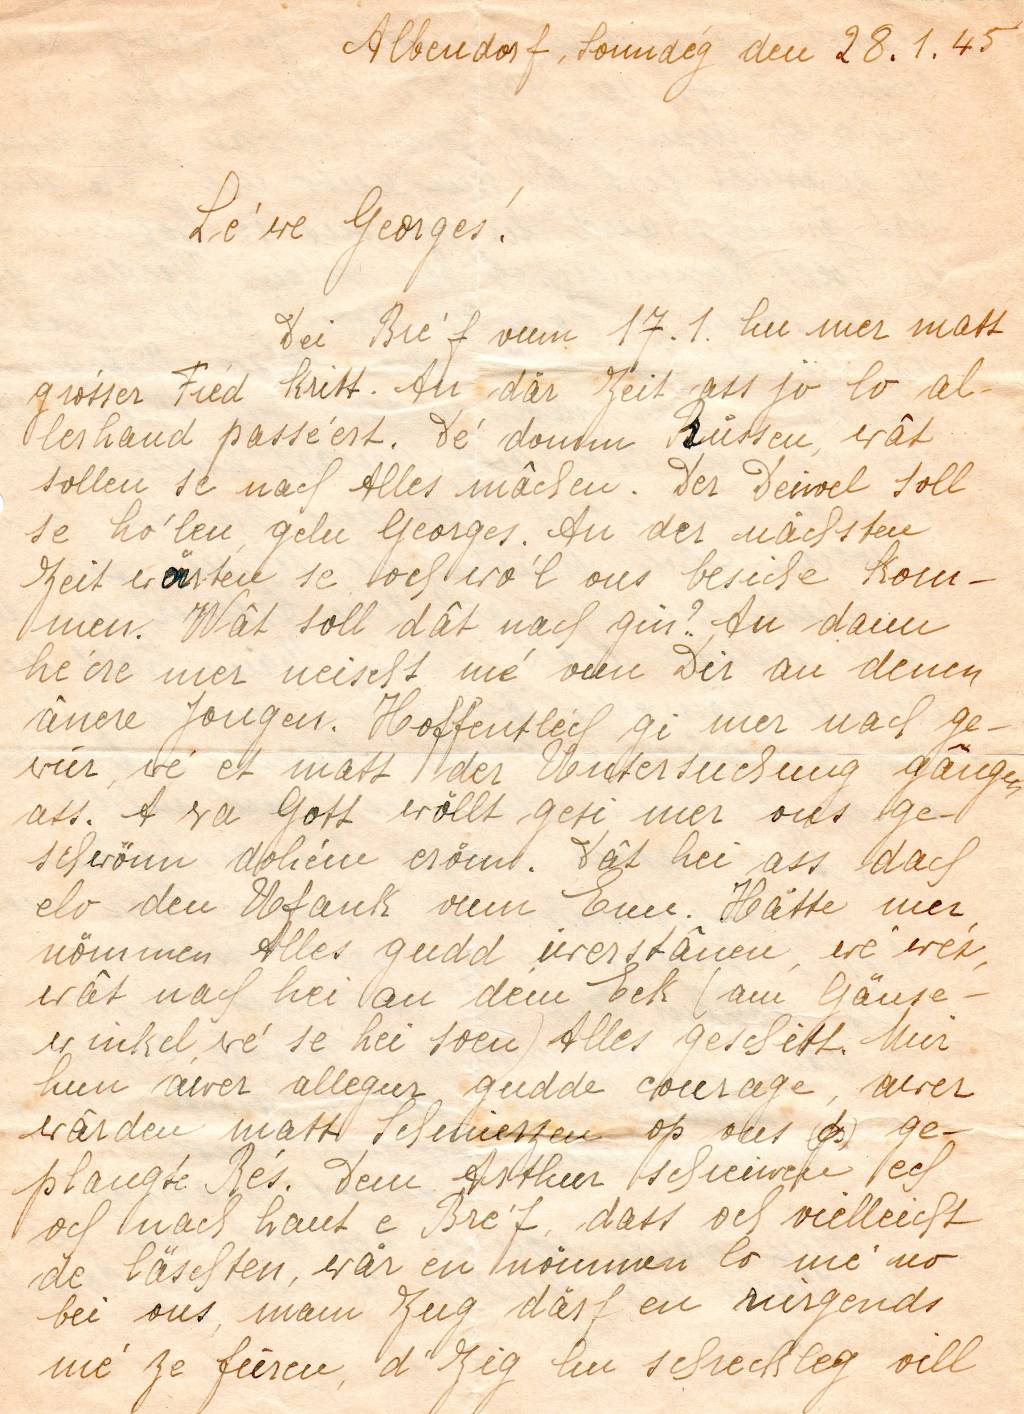 Albendorf, Sonndég den 28.1.45
Lé'we Georges!
Dei Bré'f vum 17.1. hu mer matt
grósser Fréd kritt. An där Zeit ass jö lo al-
lerhand passéert. Dé' domm Rüssen, wât
sollen se nach Alles mâchen. Der Deiwel soll
se ho'len, geln Georges. An der nächsten
Zeit wärten se och wo'l ons besiche kom-
men. Wât soll dât nach gin? An dann
hé'ere mer neischt mé vun Dir an denen
ânere Jongen. Hoffentlech gi mer nach ge-
wûr, wé' et matt der Untersuchung gângen
ass. A wa Gott wöllt gesi mer ons ge-
schwönn dohém erömm. Dât hei ass dach
elo den Ufank vum Enn. Hätte mer
nömmen Alles gudd iwerstânen, wé' wés,
wât nach hei an dem Eck (am Gänse-
winkel, wé' se hei soen) Alles geschitt. Mir
hun äwer allegur gudde courage, awer
wârden matt Schmierzen op ons ge-
plangte Rés. Dem Arthur schreiwen ech
och nach haut e Bré'f, dass och vielleicht
de läschten, wär en nömmen lo mé' no
bei ons, mam Zug därf en nirgends
mé' ze fueren, d'Zig hu schreckleg vill